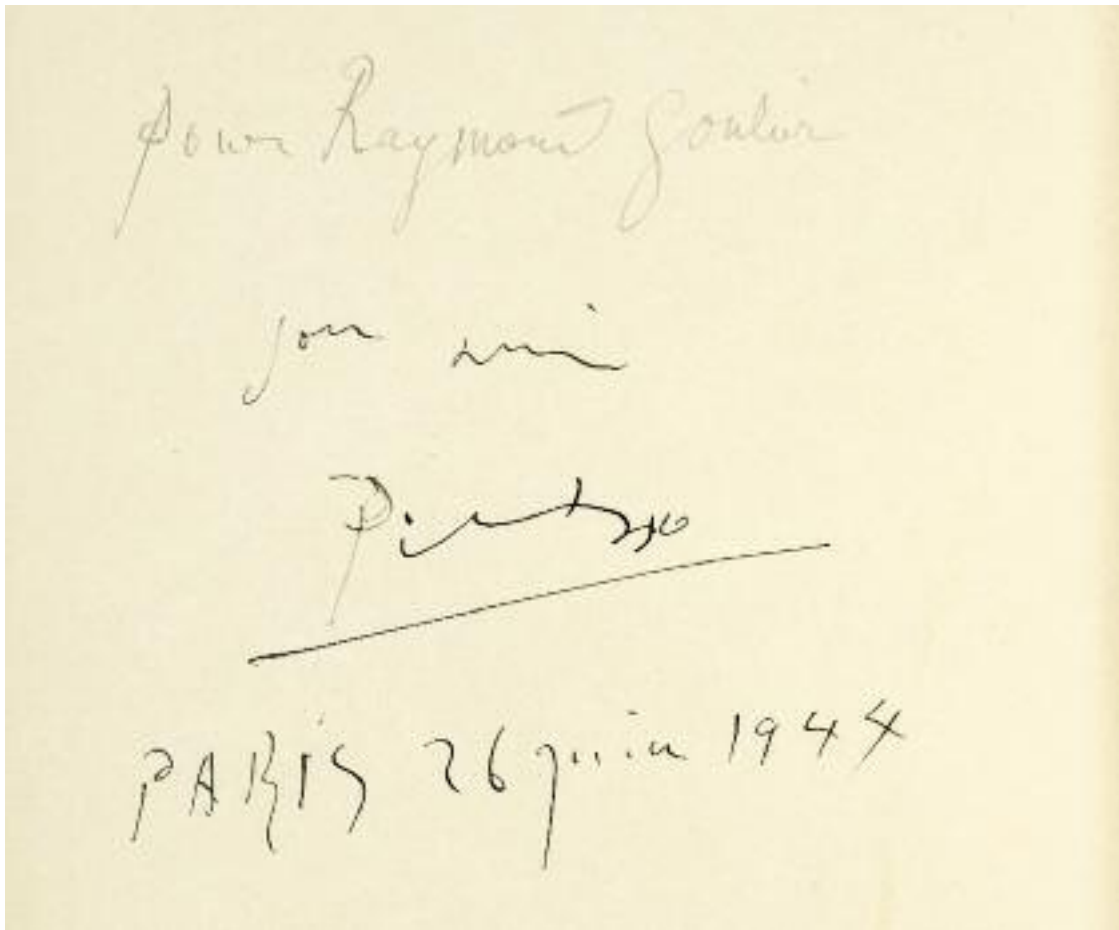 Pour Raymond
son ami
Picasso
PARIS 26 juin 1944